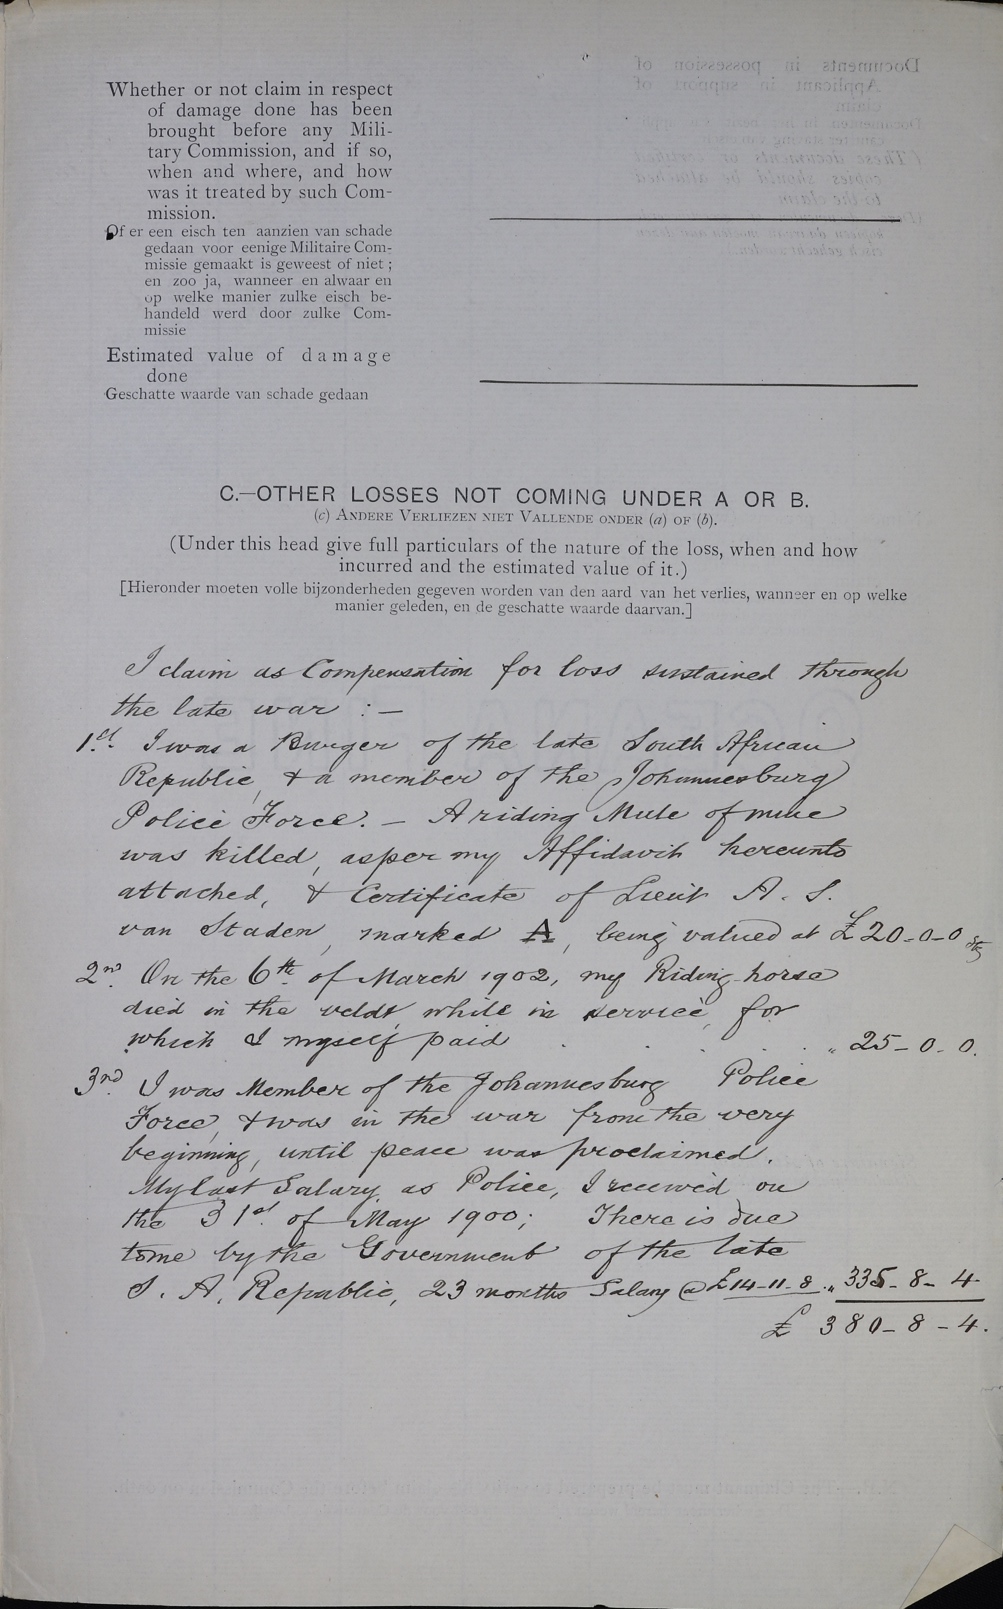 Whether or not claim in respect
of damage done has been
brought before any Mili-
tary Commission, and if so,
when and where, and how
was it treated by such Com-
mission.
Of er een eisch ten aanzien van schade
gedaan voor eenige Militaire Com-
missie gemaakt is geweest of niet ;
en zoo ja, wanneer en alwaar en
op welke manier zulke eisch be-
handeld werd door zulke Com-
missie
Estimated value of damage
done
Geschatte waarde van schade gedaan
C.—OTHER LOSSES NOT COMING UNDER A OR B.
(c) ANDERE VERLIEZEN NIET VALLENDE ONDER (a) OF (b).
(Under this head give full particulars of the nature of the loss, when and how
incurred and the estimated value of it.)
[Hieronder moeten volle bijzonderheden gegeven worden van den aard van het verlies, wanneer en op welke
manier geleden, en de geschatte waarde daarvan.]
I claim as Compensation for loss sustained through
the late war :—
1st. I was a Burger of the late South African
Republic, & a member of the Johannesburg
Police Force. — A riding Mule of mine
was killed, as per my Affidavit hereunto
attached, & Certificate of Lieut A. S.
van Staden, marked A, being valued at £20-0-0 Stg
2nd. On the 6th. of March 1902, my Riding-horse
died in the veldt, while in service, for
which I myself paid . . . . „ 25-0-0.
3rd. I was Member of the Johannesburg Police
Force, & was in the war from the very
beginning, until peace was proclaimed.
My last Salary, as Police, I received on
the 31st. of May 1900; There is due
to me by the Government of the late
S. A. Republic, 23 months Salary @ £14-11-8 „ 335-8-4
£ 380-8-4.